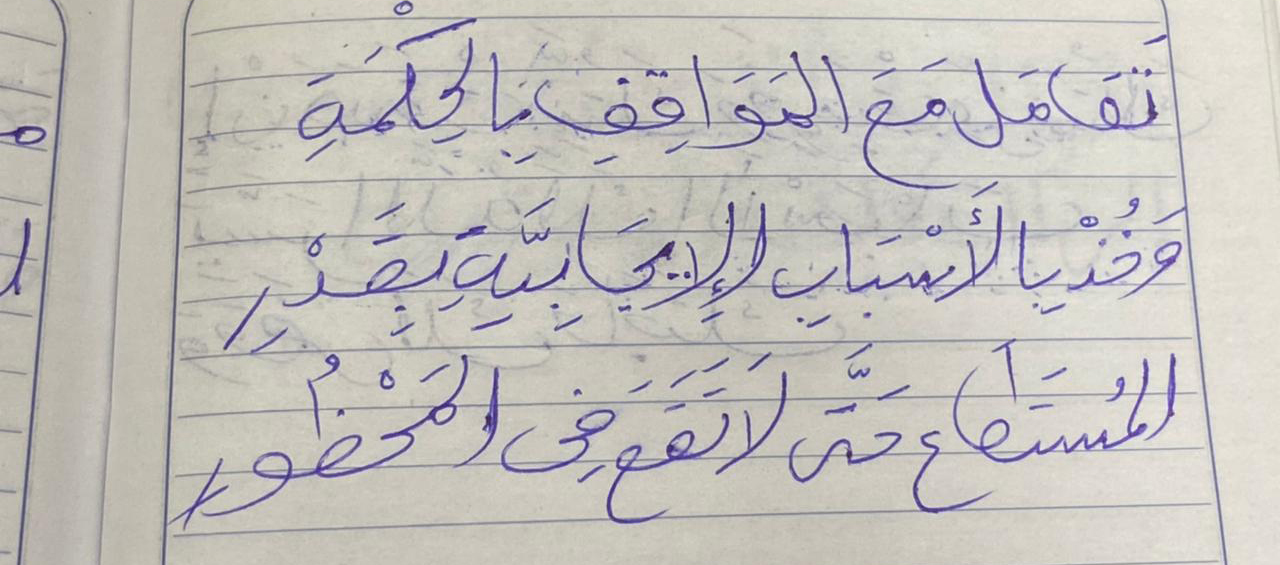 تَعَامَل مَعَ المَوَاقِفِ بِالحِكْمَةِ
وَخُذْ بِالأَسْبَابِ الإِيجَابِيَّةِ بِقَدْرِ
المُسْتَطَاع حَتَّى لَا تَقَعَ فِى المَحْظُور